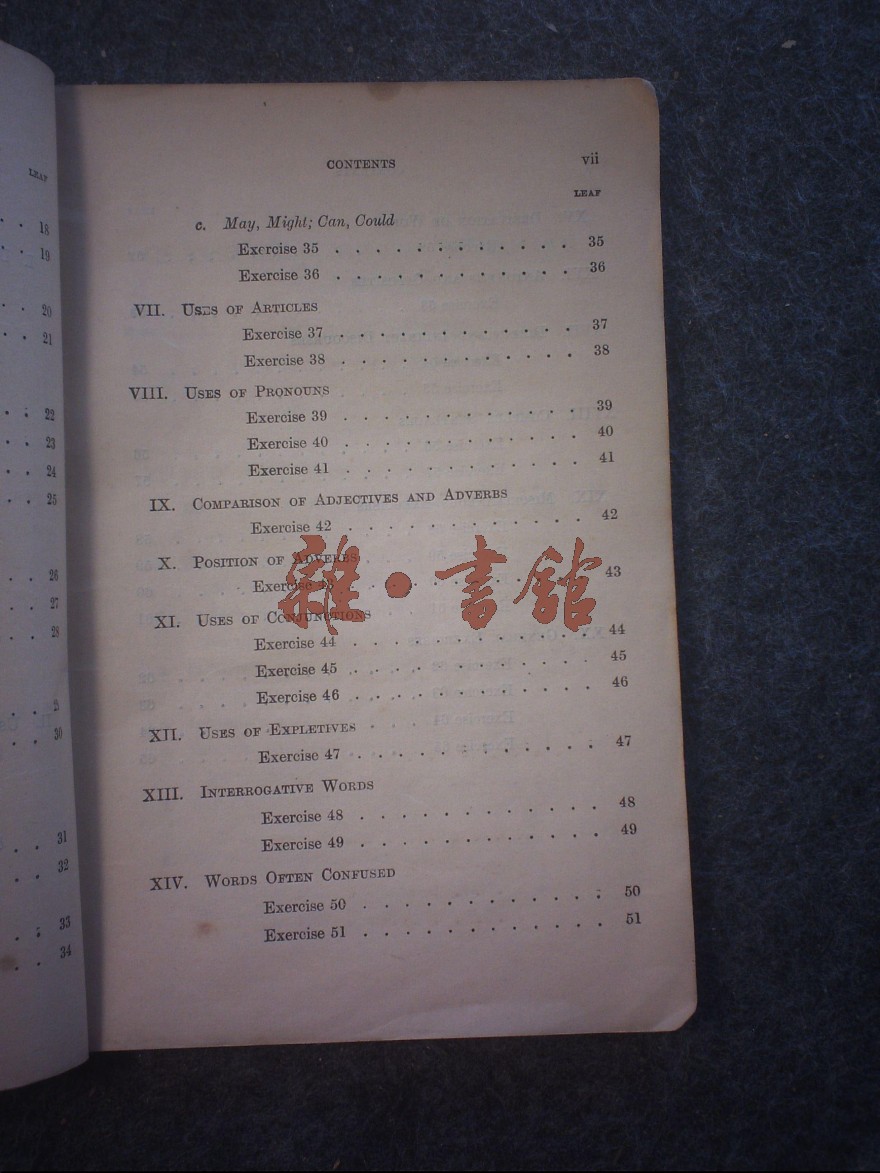 LEAF
18
19
20
21
22
23
24
25
26
27
28
30
31
32
33
34
CONTENTS vii
LEAF
c. May, Might; Can, Could
Exercise 35 . . . . . . . . . . 35
Exercise 36 . . . . . . . . . . 36
VII. USES OF ARTICLES
Exercise 37 . . . . . . . . . . 37
Exercise 38 . . . . . . . . . . 38
VIII. USES OF PRONOUNS
Exercise 39 . . . . . . . . . . 39
Exercise 40 . . . . . . . . . . 40
Exercise 41 . . . . . . . . . . 41
IX. COMPARISON OF ADJECTIVES AND ADVERBS
Exercise 42 . . . . . . . . . . 42
X. POSITION OF ADVERBS
Exercise 43 . . . . . . . . . . 43
雜·書館
XI. USES OF CONJUNCTIONS
Exercise 44 . . . . . . . . . . 44
Exercise 45 . . . . . . . . . . 45
Exercise 46 . . . . . . . . . . 46
XII. USES OF EXPLETIVES
Exercise 47 . . . . . . . . . . 47
XIII. INTERROGATIVE WORDS
Exercise 48 . . . . . . . . . . 48
Exercise 49 . . . . . . . . . . 49
XIV. WORDS OFTEN CONFUSED
Exercise 50 . . . . . . . . . . 50
Exercise 51 . . . . . . . . . . 51